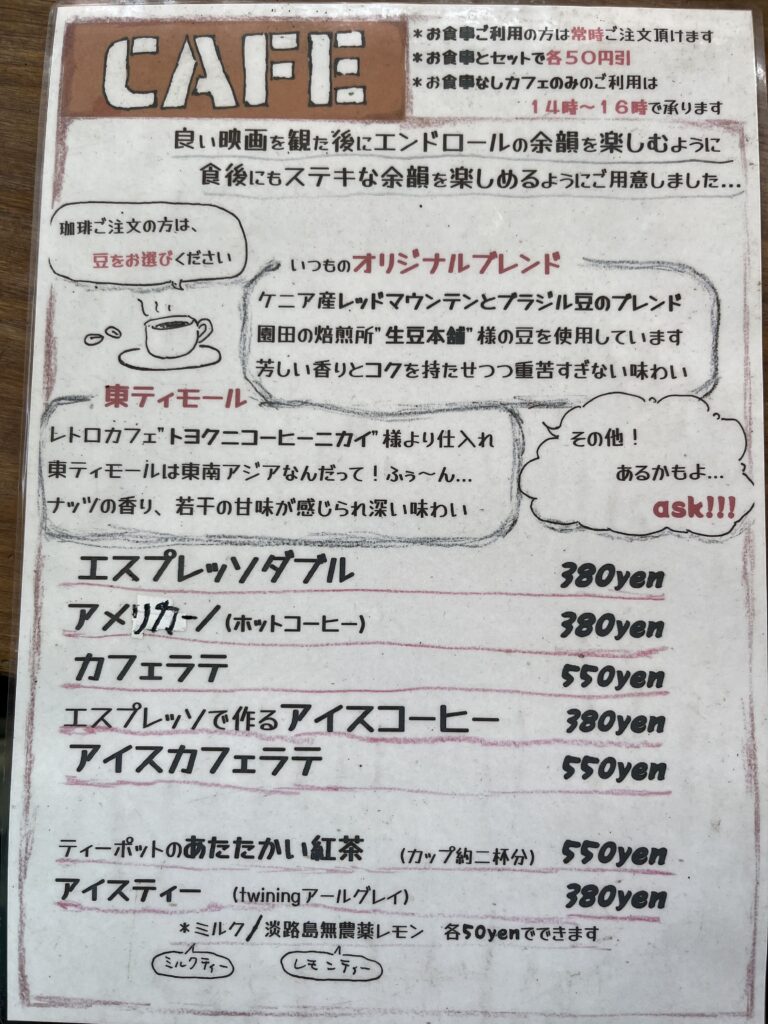 CAFE
*お食事ご利用の方は常時ご注文頂けます
*お食事とセットで各50円引
*お食事なしカフェのみのご利用は
14時～16時で承ります
良い映画を観た後にエンドロールの余韻を楽しむように
食後にもステキな余韻を楽しめるようにご用意しました...
珈琲ご注文の方は、
豆をお選びください
いつものオリジナルブレンド
ケニア産レッドマウンテンとブラジル豆のブレンド
園田の焙煎所"生豆本舗"様の豆を使用しています
芳しい香りとコクを持たせつつ重苦すぎない味わい
東ティモール
レトロカフェ"トヨクニコーヒーニカイ"様より仕入れ
東ティモールは東南アジアなんだって！ふぅ～ん...
ナッツの香り、若干の甘味が感じられ深い味わい
その他！
あるかもよ...
ask!!!
エスプレッソダブル 380yen
アメリカーノ(ホットコーヒー) 380yen
カフェラテ 550yen
エスプレッソで作るアイスコーヒー 380yen
アイスカフェラテ 550yen
ティーポットのあたたかい紅茶 (カップ約二杯分) 550yen
アイスティー (twiningアールグレイ) 380yen
*ミルク/淡路島無農薬レモン 各50yenでできます
ミルクティー レモンティー